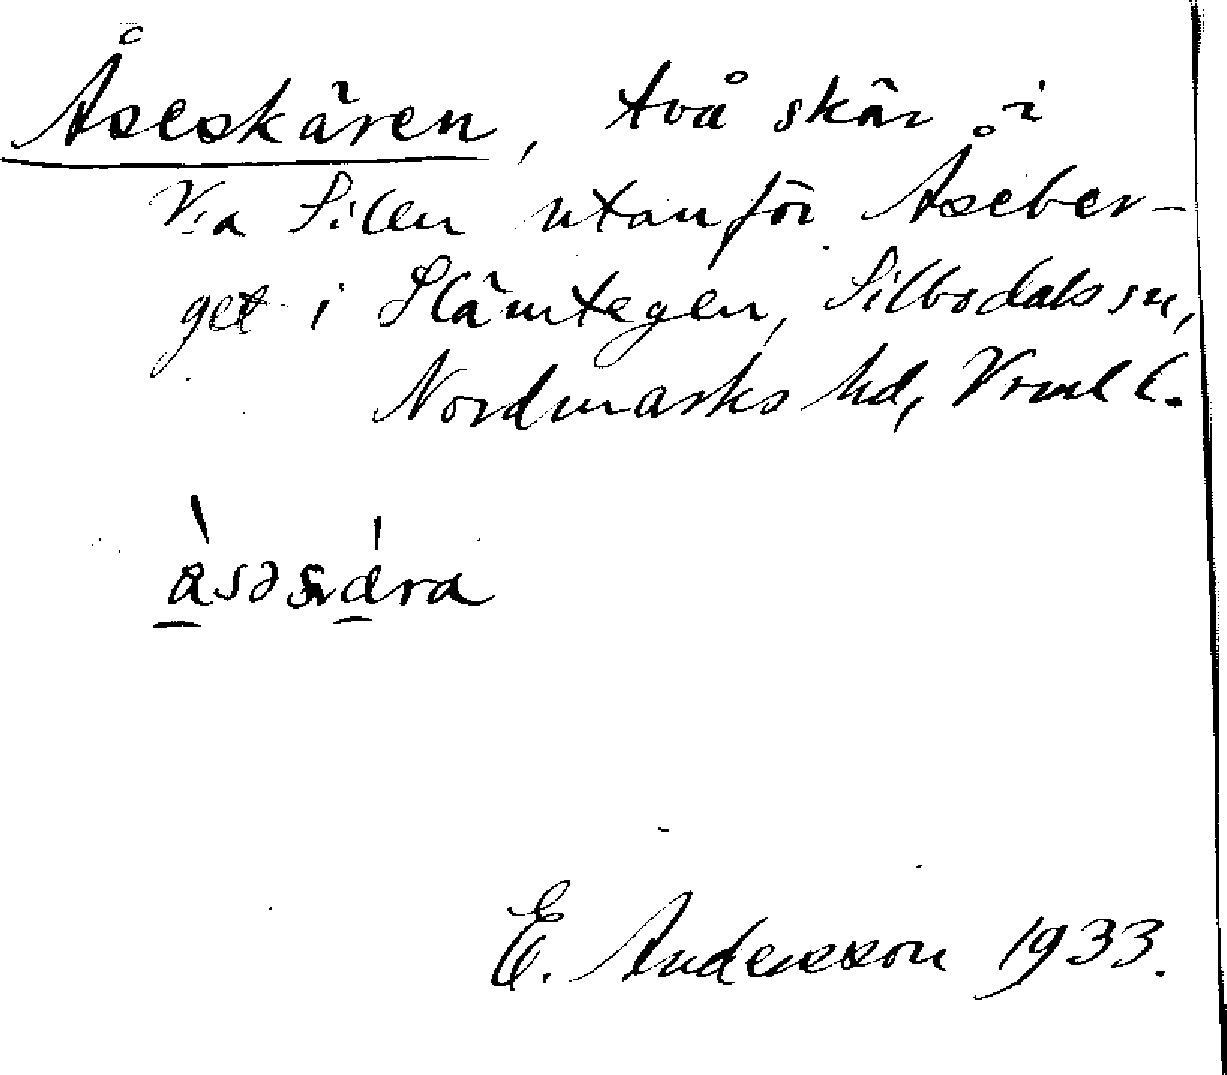 Åseskären, två skär i
V:a Silen utanför Åseber-
get i Slämtegen, Silbodals sn,
Nordmarks hd, Vrml l.
E. Andersson 1933.